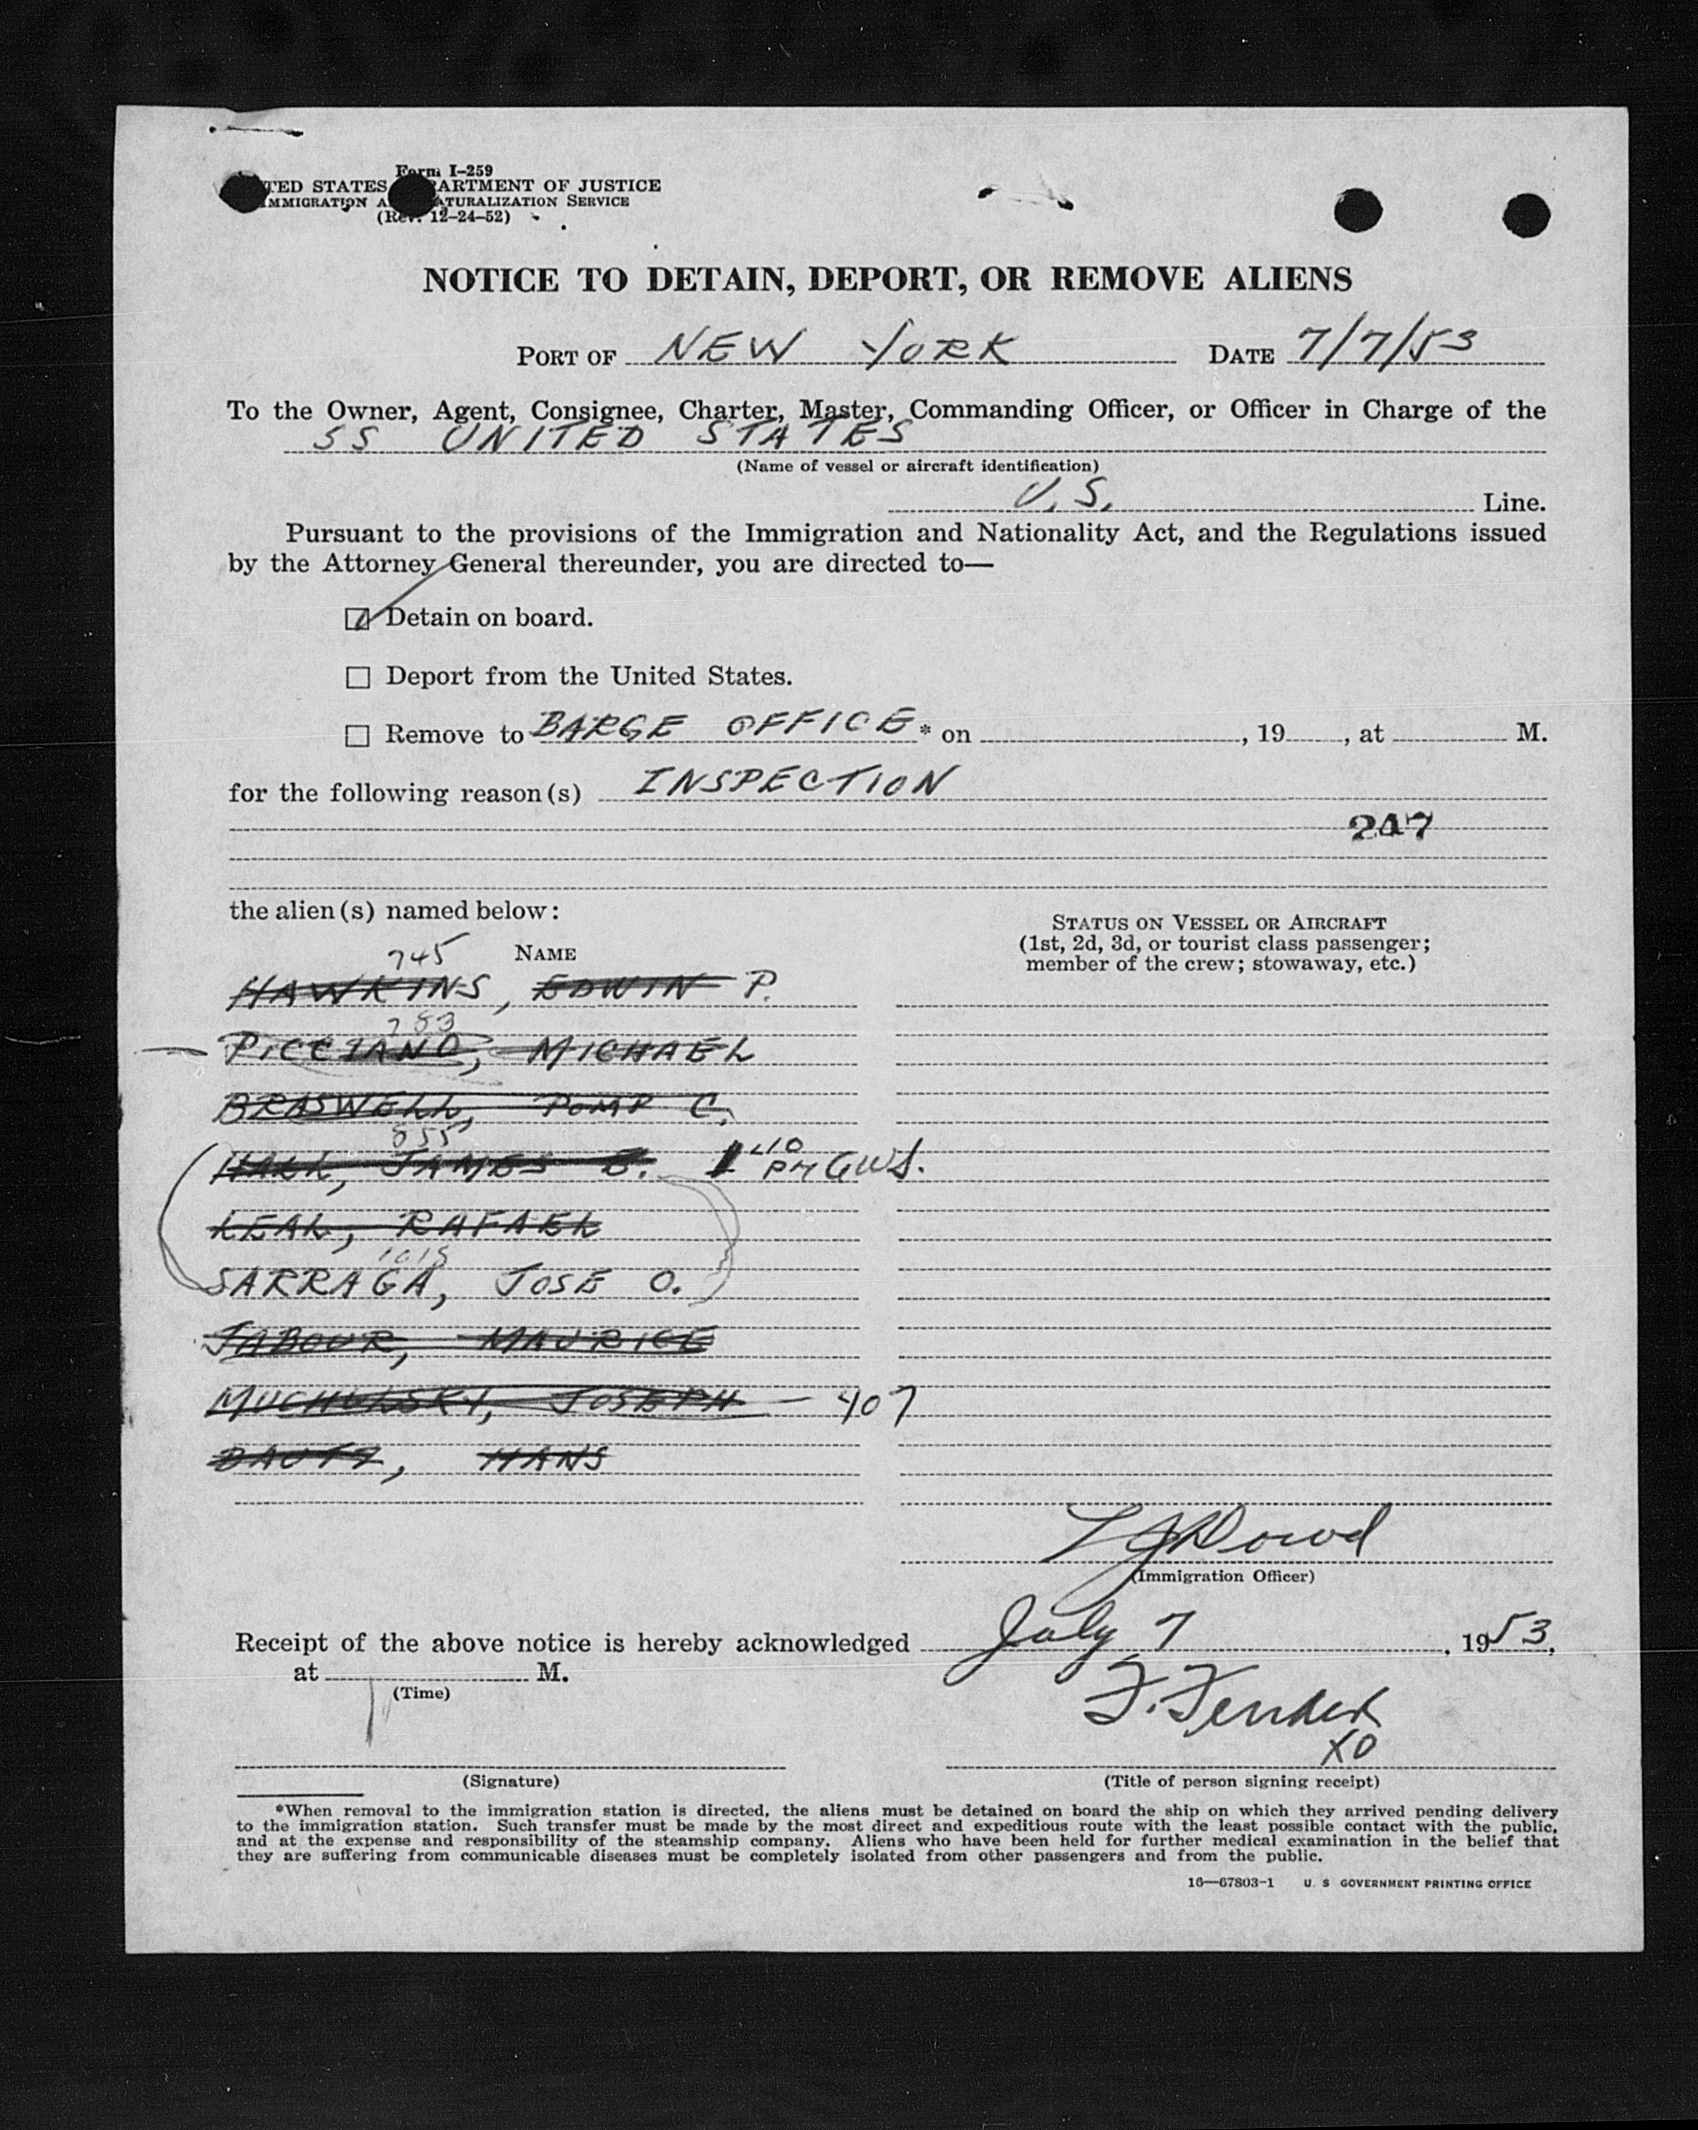 Form I-259
TED STATES PARTMENT OF JUSTICE
IMMIGRATION A ATURALIZATION SERVICE
(Rev. 12-24-52)
NOTICE TO DETAIN, DEPORT, OR REMOVE ALIENS
PORT OF NEW YORK DATE 7/7/53
To the Owner, Agent, Consignee, Charter, Master, Commanding Officer, or Officer in Charge of the
SS UNITED STATES
(Name of vessel or aircraft identification)
U.S. Line.
Pursuant to the provisions of the Immigration and Nationality Act, and the Regulations issued
by the Attorney General thereunder, you are directed to—
Detain on board.
Deport from the United States.
Remove to BARGE OFFICE * on , 19 , at M.
for the following reason(s) INSPECTION
247
the alien(s) named below:
STATUS ON VESSEL OR AIRCRAFT
(1st, 2d, 3d, or tourist class passenger;
member of the crew; stowaway, etc.)
745 NAME
HAWKINS, EDWIN P.
783
PICCIANO, MICHAEL
BRASWELL, POMP C.
855
HALL, JAMES E. 1 40 PM GWS.
LEAL, RAFAEL
1018
SARRAGA, JOSE O.
JABOUR, MAURICE
MUCHULSKY, JOSEPH — 407
BAUTZ, HANS
L J Dowd
(Immigration Officer)
Receipt of the above notice is hereby acknowledged July 7, 1953,
at M.
(Time)
F. Fender
XO
(Signature) (Title of person signing receipt)
*When removal to the immigration station is directed, the aliens must be detained on board the ship on which they arrived pending delivery
to the immigration station. Such transfer must be made by the most direct and expeditious route with the least possible contact with the public,
and at the expense and responsibility of the steamship company. Aliens who have been held for further medical examination in the belief that
they are suffering from communicable diseases must be completely isolated from other passengers and from the public.
16—67803-1 U. S GOVERNMENT PRINTING OFFICE